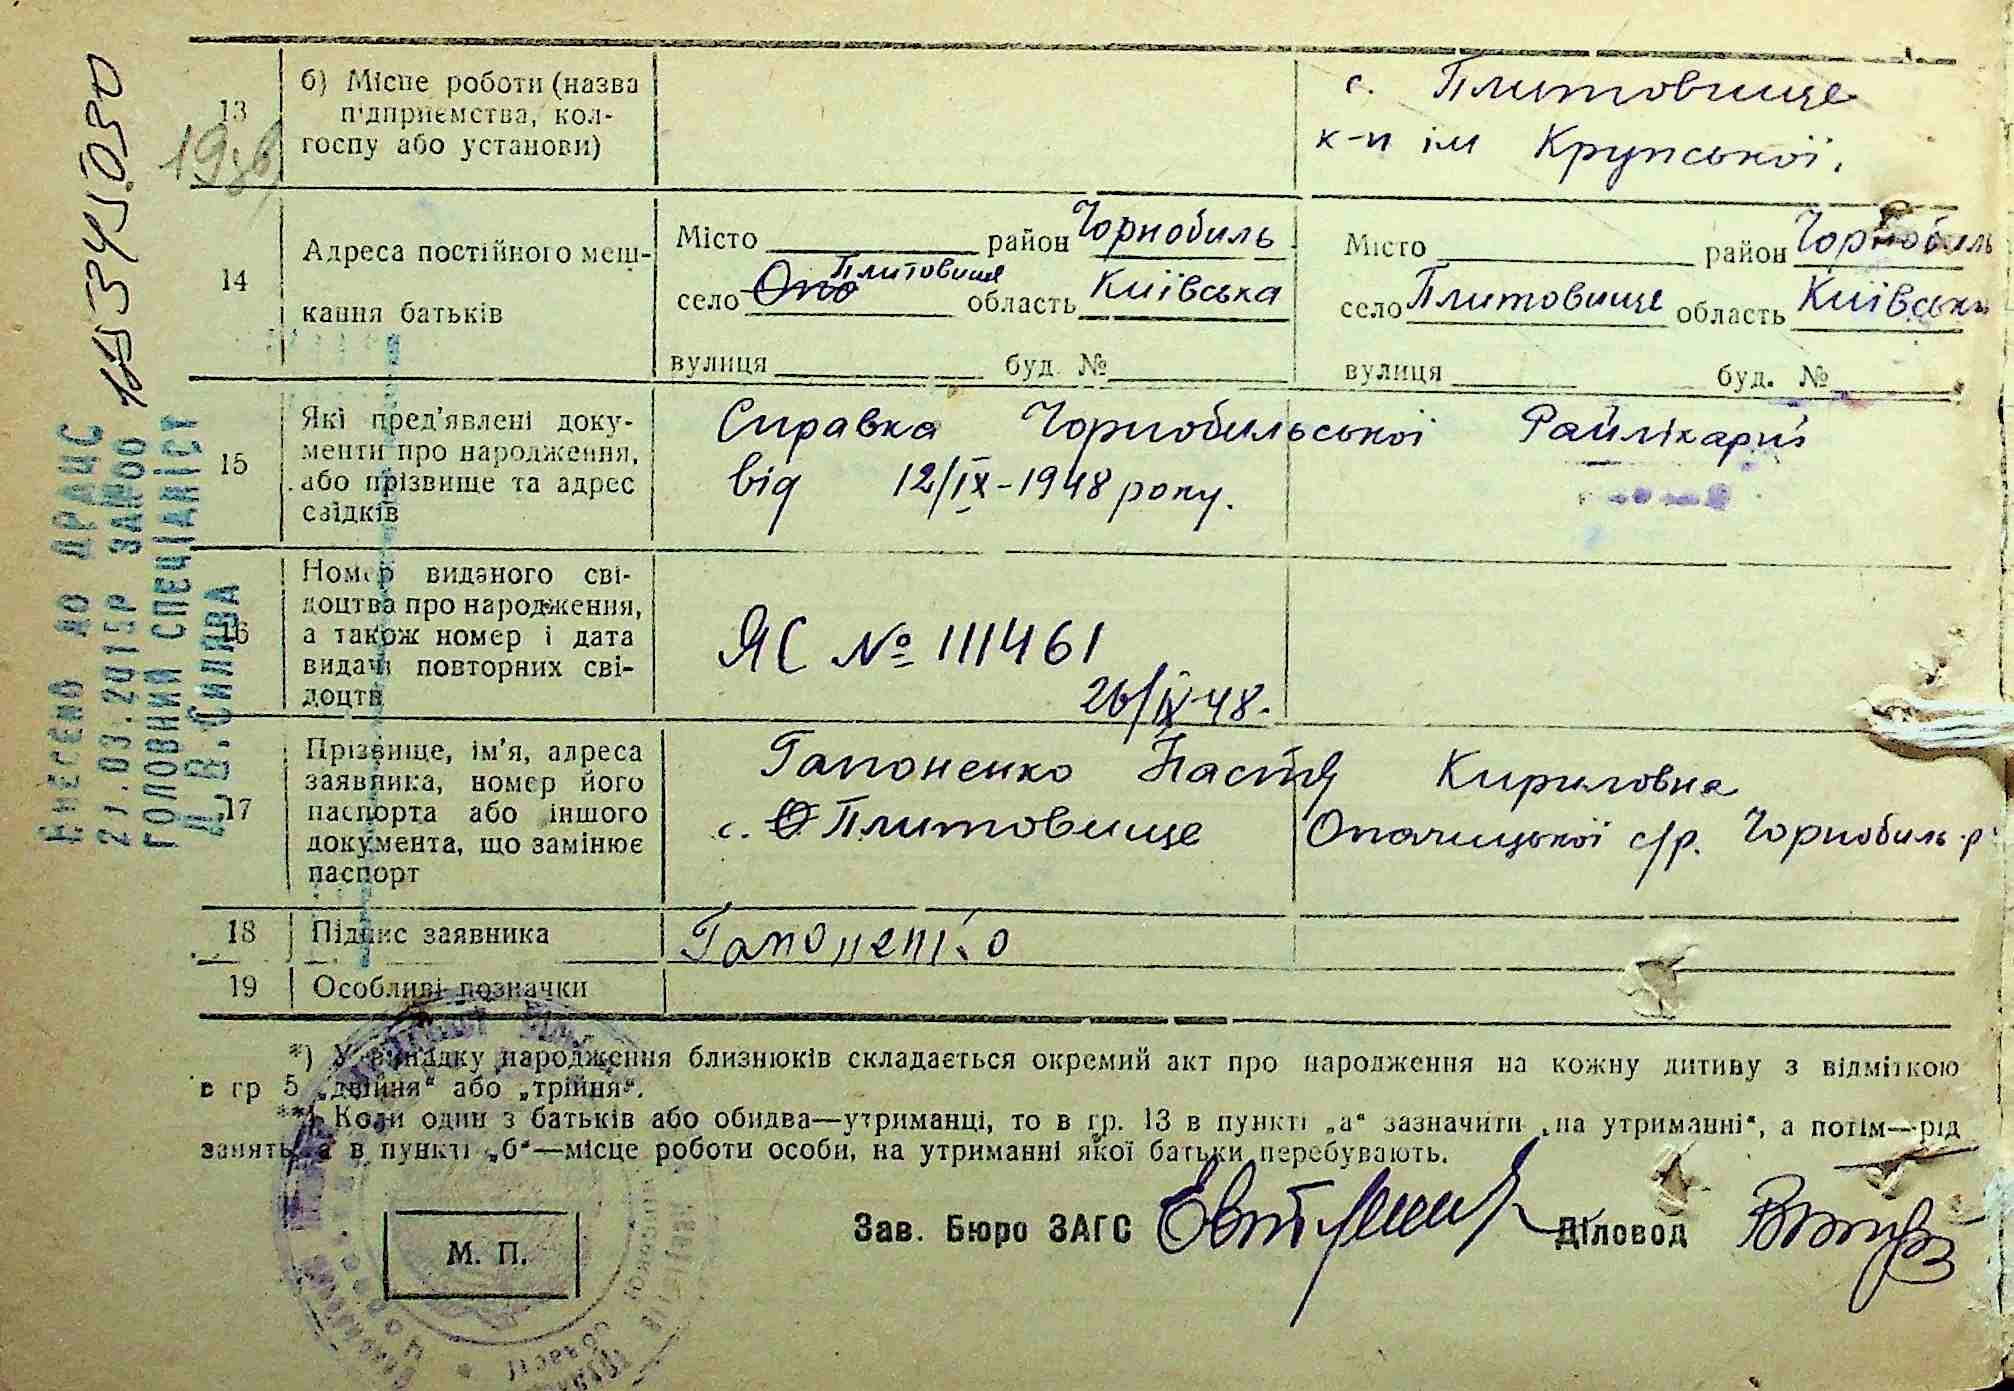 13
б) Місце роботи (назва
підприємства, кол-
госпу або установи)
с. Плитовище
к-п ім Крупської.
14
Адреса постійного меш-
кання батьків
Місто район Чорнобиль
село Плитовище область Київська
вулиця буд. №
Місто район Чорнобиль
село Плитовище область Київська
вулиця буд. №
15
Які пред'явлені доку-
менти про народження,
або прізвище та адрес
свідків
Справка Чорнобильської Райлікарні
від 12/IX-1948 року.
16
Номер виданого сві-
доцтва про народження,
а також номер і дата
видачі повторних сві-
доцтв
ЯС № 111461
26/IX-48.
17
Прізвище, ім'я, адреса
заявника, номер його
паспорта або іншого
документа, що замінює
паспорт
Гапоненко Настя Кириловна
с. Плитовище Опачицької с/р. Чорнобиль-р
18
Підпис заявника
Гапоненко
19
Особливі позначки
*) У випадку народження близнюків складається окремий акт про народження на кожну дитину з відміткою
в гр 5 „двійня“ або „трійня“.
**) Коли один з батьків або обидва—утриманці, то в гр. 13 в пункті „а“ зазначити „на утриманні“, а потім—рід
занять, а в пункті „б“—місце роботи особи, на утриманні якої батьки перебувають.
М. П.
Зав. Бюро ЗАГС
Діловод
Внесено до ДРАЦС
21.03.2015р
ГОЛОВНИЙ СПЕЦІАЛІСТ